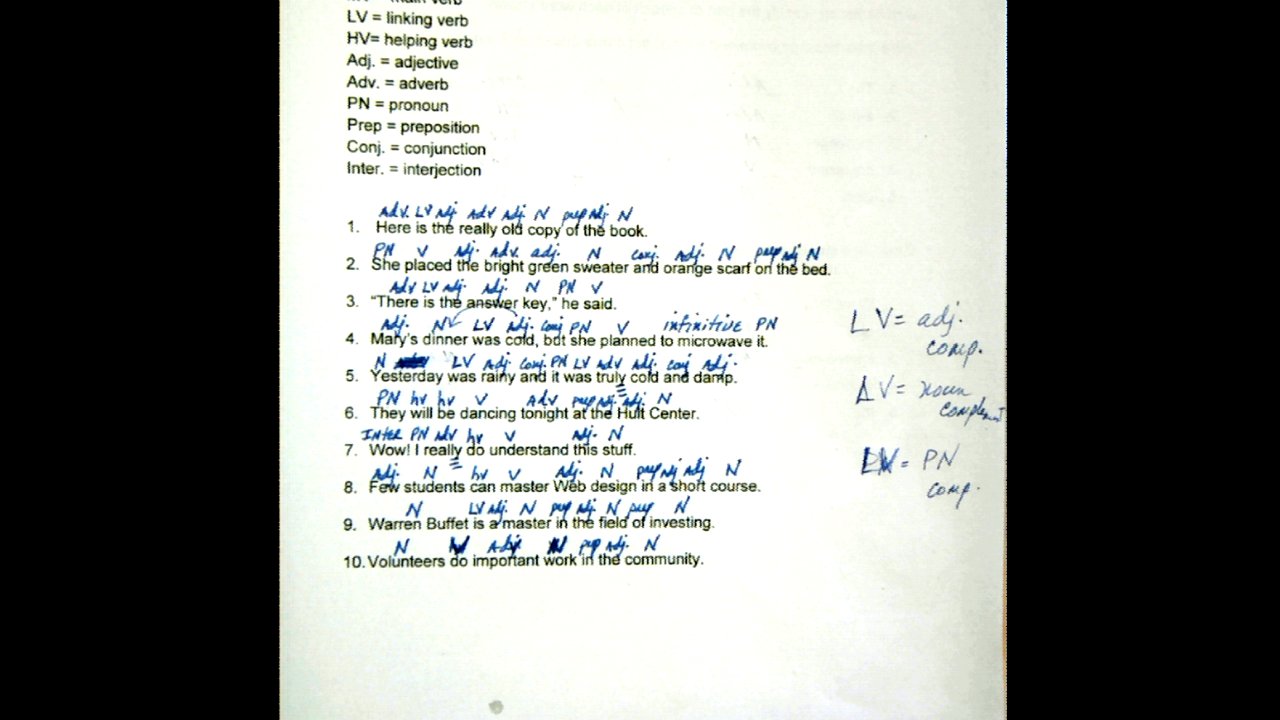 LV = linking verb
HV= helping verb
Adj. = adjective
Adv. = adverb
PN = pronoun
Prep = preposition
Conj. = conjunction
Inter. = interjection
Adv. LV Adj Adv Adj. N prep Adj N
1. Here is the really old copy of the book.
PN V Adj. Adv. adj. N conj. Adj. N prep Adj N
2. She placed the bright green sweater and orange scarf on the bed.
Adv LV Adj Adj. N PN V
3. "There is the answer key," he said.
Adj. N LV Adj. conj PN V infinitive PN
4. Mary's dinner was cold, but she planned to microwave it.
N LV Adj. Conj. PN LV Adv Adj. conj Adj.
5. Yesterday was rainy and it was truly cold and damp.
PN hv hv V Adv prep Adj. Adj. N
6. They will be dancing tonight at the Hult Center.
Inter PN Adv hv V Adj. N
7. Wow! I really do understand this stuff.
Adj. N hv V Adj. N prep Adj Adj N
8. Few students can master Web design in a short course.
N LV Adj. N prep Adj. N prep N
9. Warren Buffet is a master in the field of investing.
N Adj. N prep Adj. N
10. Volunteers do important work in the community.
LV = adj.
comp.
LV = noun
complement
= PN
comp.